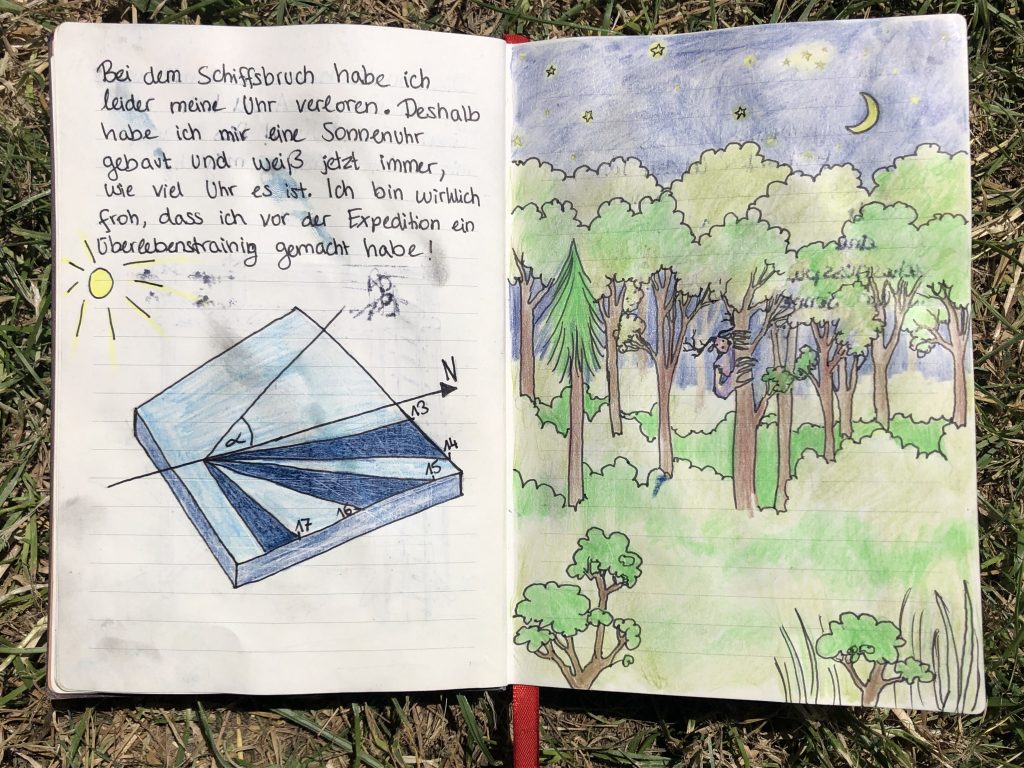 Bei dem Schiffsbruch habe ich
leider meine Uhr verloren. Deshalb
habe ich mir eine Sonnenuhr
gebaut und weiß jetzt immer,
wie viel Uhr es ist. Ich bin wirklich
froh, dass ich vor der Expedition ein
Überlebenstrainig gemacht habe!
N
13
14
α
15
16
17